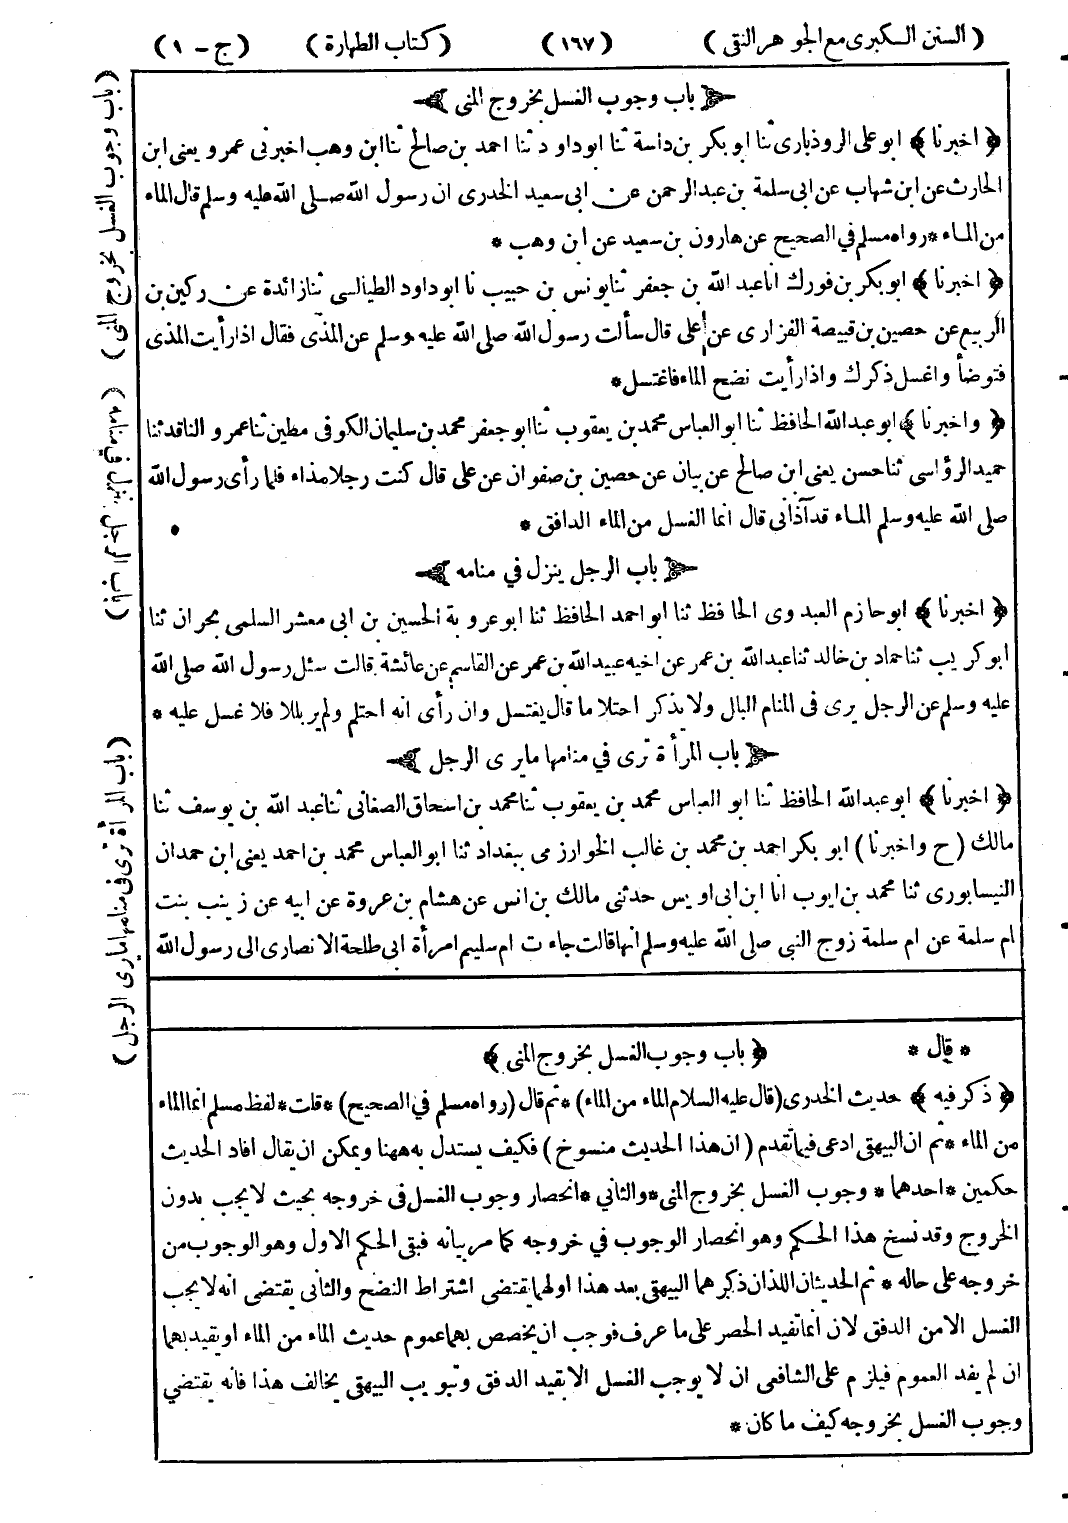 ( السنن الكبرى مع الجوهر النقى ) ( ١٦٧ ) ( كتاب الطهارة ) ( ج - ١ )
باب وجوب الغسل بخروج المنى
﴿ اخبرنا ﴾ ابو على الروذبارى ثنا ابو بكر بن داسة ثنا ابو داود ثنا احمد بن صالح ثنا ابن وهب اخبرنى عمرو يعنى ابن
الحارث عن ابن شهاب عن ابى سلمة بن عبد الرحمن عن ابى سعيد الخدرى ان رسول الله صلى الله عليه وسلم قال الماء
من الماء * رواه مسلم في الصحيح عن هارون بن سعيد عن ابن وهب *
﴿ اخبرنا ﴾ ابو بكر بن فورك انا عبد الله بن جعفر ثنا يونس بن حبيب نا ابو داود الطيالسى ثنا زائدة عن ركين بن
الربيع عن حصين بن قبيصة الفزارى عن على قال سألت رسول الله صلى الله عليه وسلم عن المذى فقال اذا رأيت المذى
فتوضأ واغسل ذكرك واذا رأيت نضح الماء فاغتسل *
﴿ واخبرنا ﴾ ابو عبد الله الحافظ ثنا ابو العباس محمد بن يعقوب ثنا ابو جعفر محمد بن سليمان الكوفى مطين ثنا عمرو الناقد ثنا
حميد الرؤاسى ثنا حسن يعنى ابن صالح عن بيان عن حصين بن صفوان عن على قال كنت رجلا مذاء فلما رأى رسول الله
صلى الله عليه وسلم الماء قد آذانى قال انما الغسل من الماء الدافق *
باب الرجل ينزل في منامه
﴿ اخبرنا ﴾ ابو حازم العبدوى الحافظ ثنا ابو احمد الحافظ ثنا ابو عروبة الحسين بن ابى معشر السلمى بحران ثنا
ابو كريب ثنا حماد بن خالد ثنا عبد الله بن عمر عن اخيه عبيد الله بن عمر عن القاسم عن عائشة قالت سئل رسول الله صلى الله
عليه وسلم عن الرجل يرى فى المنام البلل ولا يذكر احتلاما قال يغتسل وان رأى انه احتلم ولم ير بللا فلا غسل عليه *
باب المرأة ترى في منامها ما يرى الرجل
﴿ اخبرنا ﴾ ابو عبد الله الحافظ ثنا ابو العباس محمد بن يعقوب ثنا محمد بن اسحاق الصغانى ثنا عبد الله بن يوسف ثنا
مالك ( ح واخبرنا ) ابو بكر احمد بن محمد بن غالب الخوارزمى ببغداد ثنا ابو العباس محمد بن احمد يعنى ابن حمدان
النيسابورى ثنا محمد بن ايوب انا ابن ابى اويس حدثنى مالك بن انس عن هشام بن عروة عن ابيه عن زينب بنت
ام سلمة عن ام سلمة زوج النبى صلى الله عليه وسلم انها قالت جاءت ام سليم امرأة ابى طلحة الانصارى الى رسول الله
* قال * ﴿ باب وجوب الغسل بخروج المنى ﴾
﴿ ذكر فيه ﴾ حديث الخدرى (قال عليه السلام الماء من الماء) * ثم قال (رواه مسلم في الصحيح) * قلت * لفظ مسلم انما الماء
من الماء * ثم ان البيهقى ادعى فيما تقدم ( ان هذا الحديث منسوخ ) فكيف يستدل به ههنا ويمكن ان يقال افاد الحديث
حكمين * احدهما * وجوب الغسل بخروج المنى * والثاني * انحصار وجوب الغسل فى خروجه بحيث لا يجب بدون
الخروج وقد نسخ هذا الحكم وهو انحصار الوجوب في خروجه كما مر بيانه فبقى الحكم الاول وهو الوجوب من
خروجه على حاله * ثم الحديثان اللذان ذكرهما البيهقى بعد هذا اولهما يقتضى اشتراط النضح والثانى يقتضى انه لا يجب
الغسل الا من الدفق لان انما تفيد الحصر على ما عرف فوجب ان يخصص بهما عموم حديث الماء من الماء او يقيد بهما
ان لم يفد العموم فيلزم على الشافعى ان لا يوجب الغسل الا بقيد الدفق وتبويب البيهقى يخالف هذا فانه يقتضي
وجوب الغسل بخروجه كيف ما كان *
( باب وجوب الغسل بخروج المنى )
( باب الرجل ينزل في منامه )
( باب المرأة ترى فى منامها ما يرى الرجل )